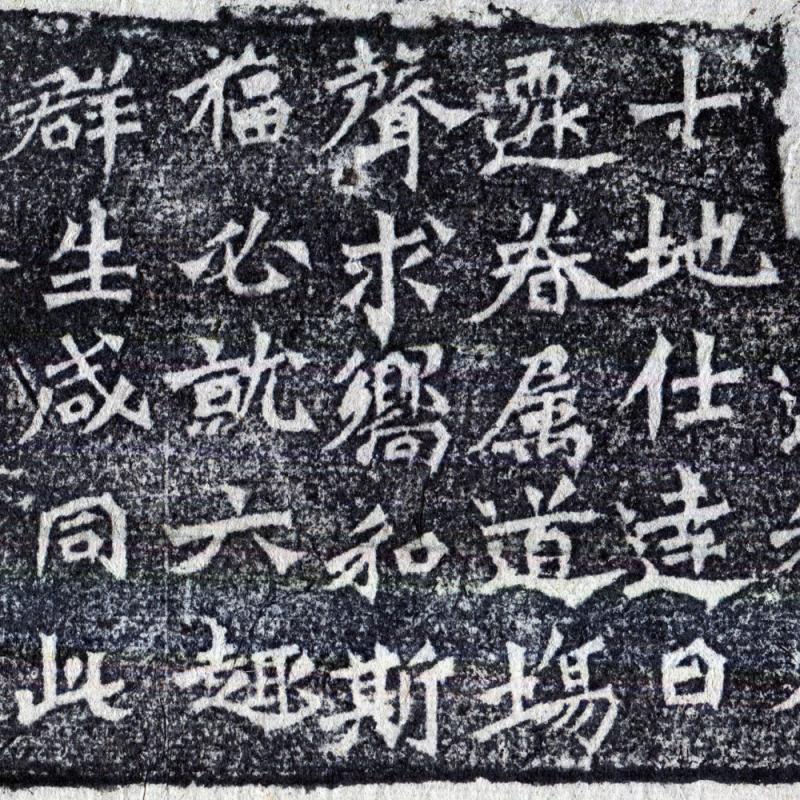 十地仕達日
遷眷属道場
聲求嚮和斯
福必就六趣
群生咸同此